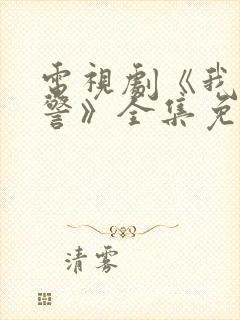 電視劇《我
警》全集免
清雾